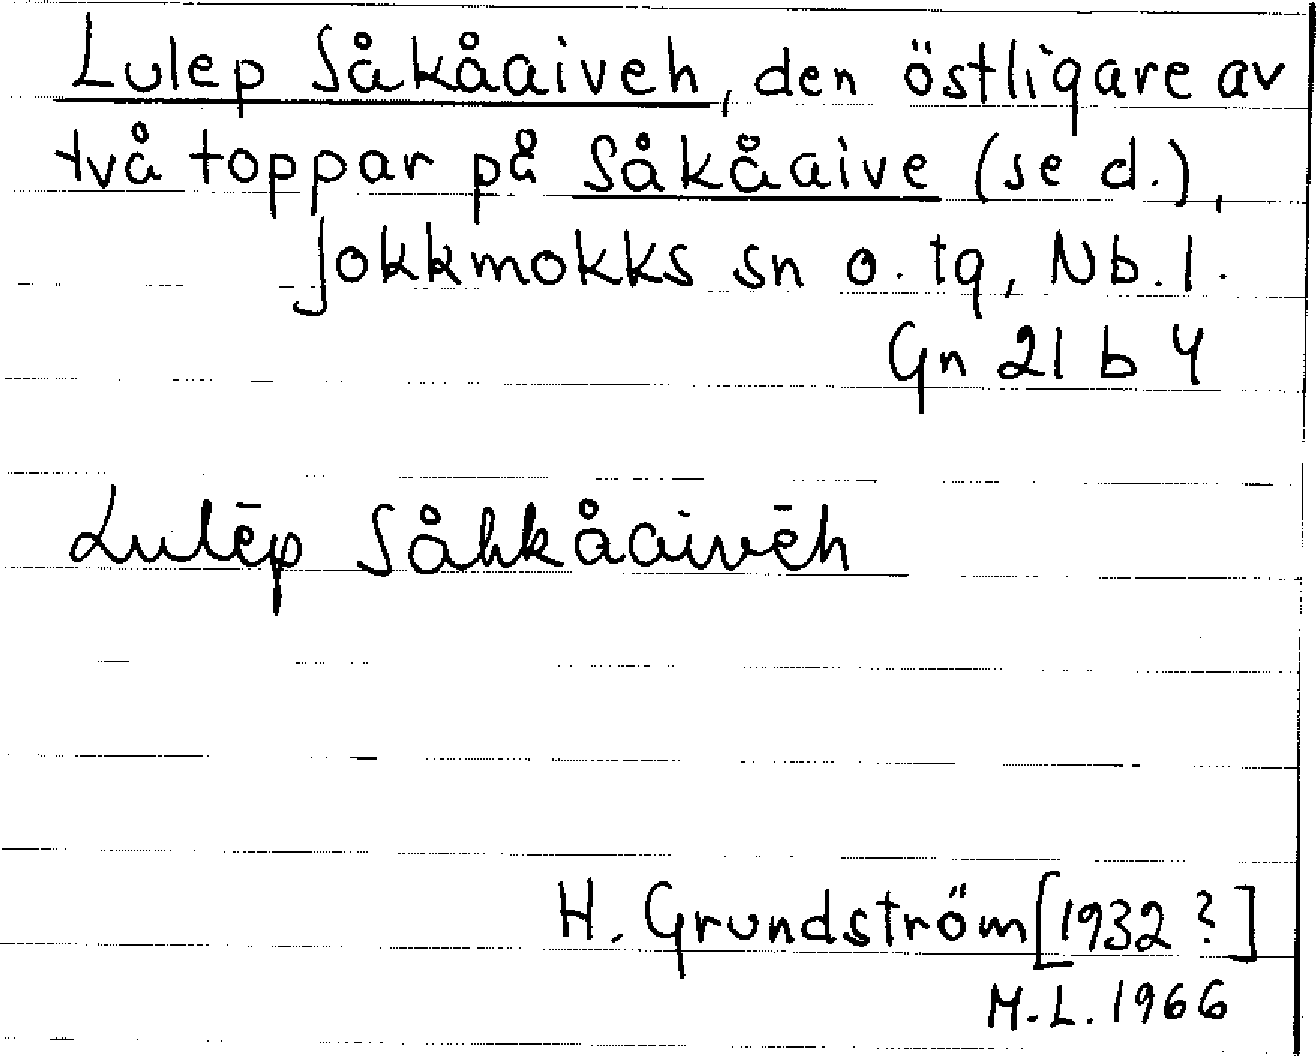 Lulep Såkåaiveh, den östligare av
två toppar på Såkåaive (se d.),
Jokkmokks sn o. tg, Nb. l.
Gn 21 b 4
Lulēp Såhkåaivēh
H. Grundström [1932 ?]
M.L. 1966